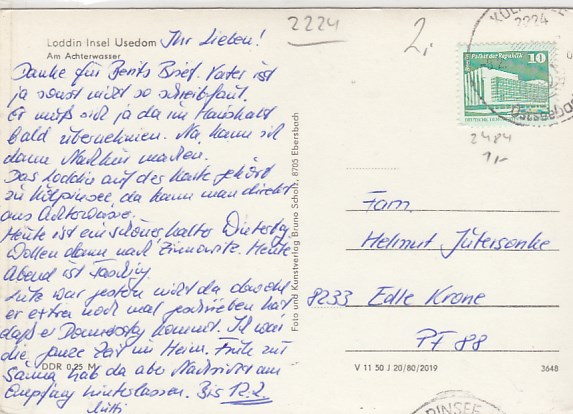 2224
2,-
Loddin Insel Usedom
Am Achterwasser
Ihr Lieben!
Danke für Berits Brief. Vater ist
ja sonst nicht so schreibfaul.
Er muß sich ja da im Haushalt
bald übernehmen. Na, kann ich
dann Nachkur machen.
Das Loddin auf der Karte gehört
zu Kölpinsee, da kann man direkt
ans Achterwasser.
Heute ist ein schöner kalter Wintertag.
Wollen dann nach Zinnowitz. Heute
Abend ist Fasching.
war gestern nicht da obwohl
er extra noch mal geschrieben hat
daß er Donnerstag kommt. Ich war
die ganze Zeit im Heim. Früh zur
Sauna hab da aber Nachricht am
Empfang hinterlassen. Bis 12.2.
Mutti
DDR 0,25 M
Foto und Kunstverlag Bruno Scholz, 8705 Ebersbach
Palast der Republik 10
2224
2484
1,-
Fam.
Helmut Jütersonke
8233 Edle Krone
PF 88
V 11 50 J 20/80/2019
3648